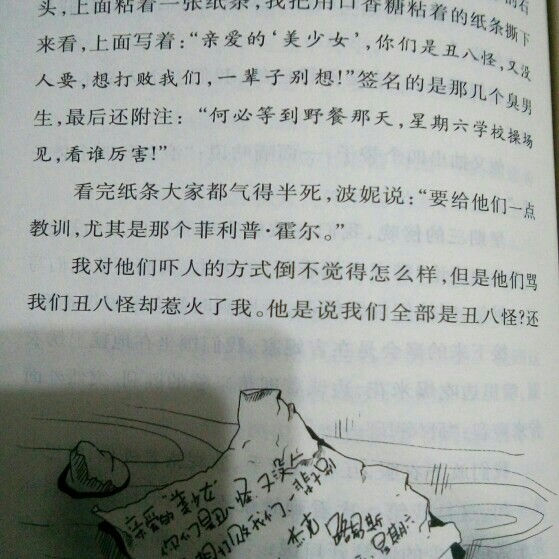 头，上面粘着一张纸条，我把用口香糖粘着的纸条撕下
来看，上面写着：“亲爱的‘美少女’，你们是丑八怪，又没
人要，想打败我们，一辈子别想！”签名的是那几个臭男
生，最后还附注：“何必等到野餐那天，星期六学校操场
见，看谁厉害！”
看完纸条大家都气得半死，波妮说：“要给他们一点
教训，尤其是那个菲利普·霍尔。”
我对他们吓人的方式倒不觉得怎么样，但是他们骂
我们丑八怪却惹火了我。他是说我们全部是丑八怪？还
亲爱的美少女
你们是丑八怪 又没人
我们 一辈子别
杰克 路易斯
星期六